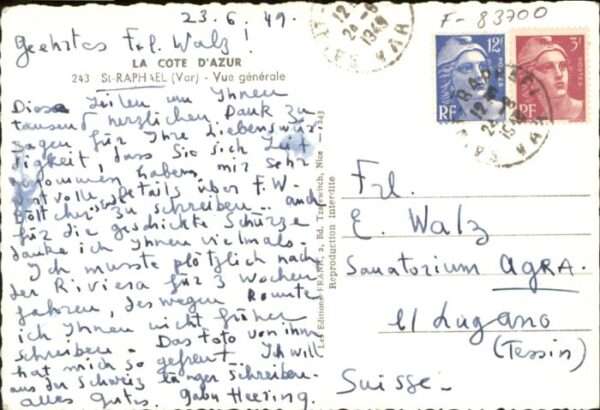 23.6.49.
F-83700
Geehrtes Frl. Walz!
LA COTE D'AZUR
243 St-RAPHAEL (Var) - Vue générale
Diese Zeilen um Ihnen
tausend herzlichen Dank zu
sagen für Ihre Liebenswür-
digkeit, dass Sie sich Zeit
genommen haben, mir sehr
wertvolle Details über F.W.
zu schreiben - und
für die geschickte Schürze
danke ich Ihnen vielmals.
Ich musste plötzlich nach
der Riviera für 3 Wochen
fahren, deswegen konnte
ich Ihnen nicht früher
schreiben. Das Foto von ihm
hat mich so gefreut. Ich will
aus der Schweiz länger schreiben.
Alles Gutes. Gaby Heering.
Les Editions FRANK, 2, Rd. Nice
Reproduction Interdite
12F
RF
3F
POSTES
RF
VAR
Frl.
E. Walz
Sanatorium AGRA.
Lugano
(Tessin)
Suisse.